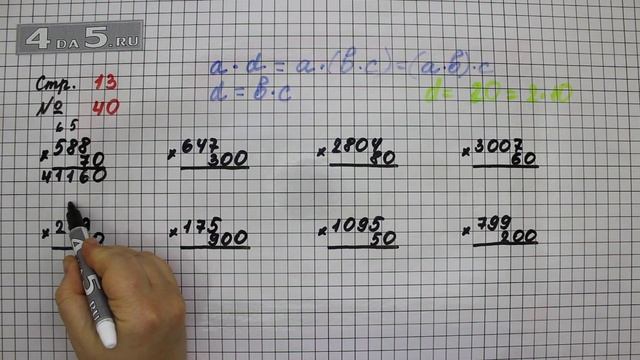 4 DA 5.RU
Стр. 13
№ 40
a · d = a · (b · c) = (a · b) · c
d = b · c
d = 20 = 2 · 10
6 5
× 588
70
41160
× 647
300
× 2804
80
× 3007
60
× 175
900
× 1095
50
× 799
200
4 DA 5.RU